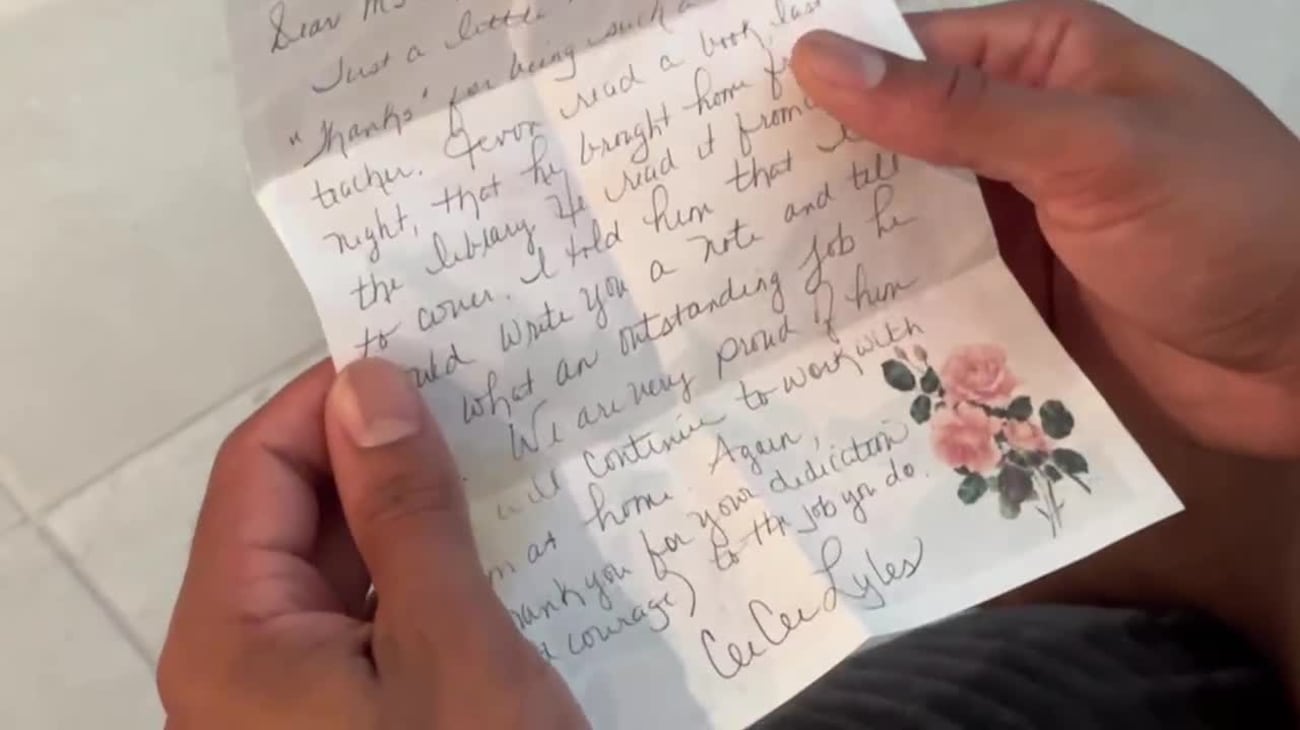 Dear Ms
Just a little
"Thanks" for being such a
teacher. Jevon read a book, last
night, that he brought home
the library. He read it from
to cover. I told him that I
would write you a note and tell
what an outstanding job he
We are very proud of him
will continue to work with
at home. Again,
thank you for your dedication
courage) to the job you do.
CeeCee Lyles